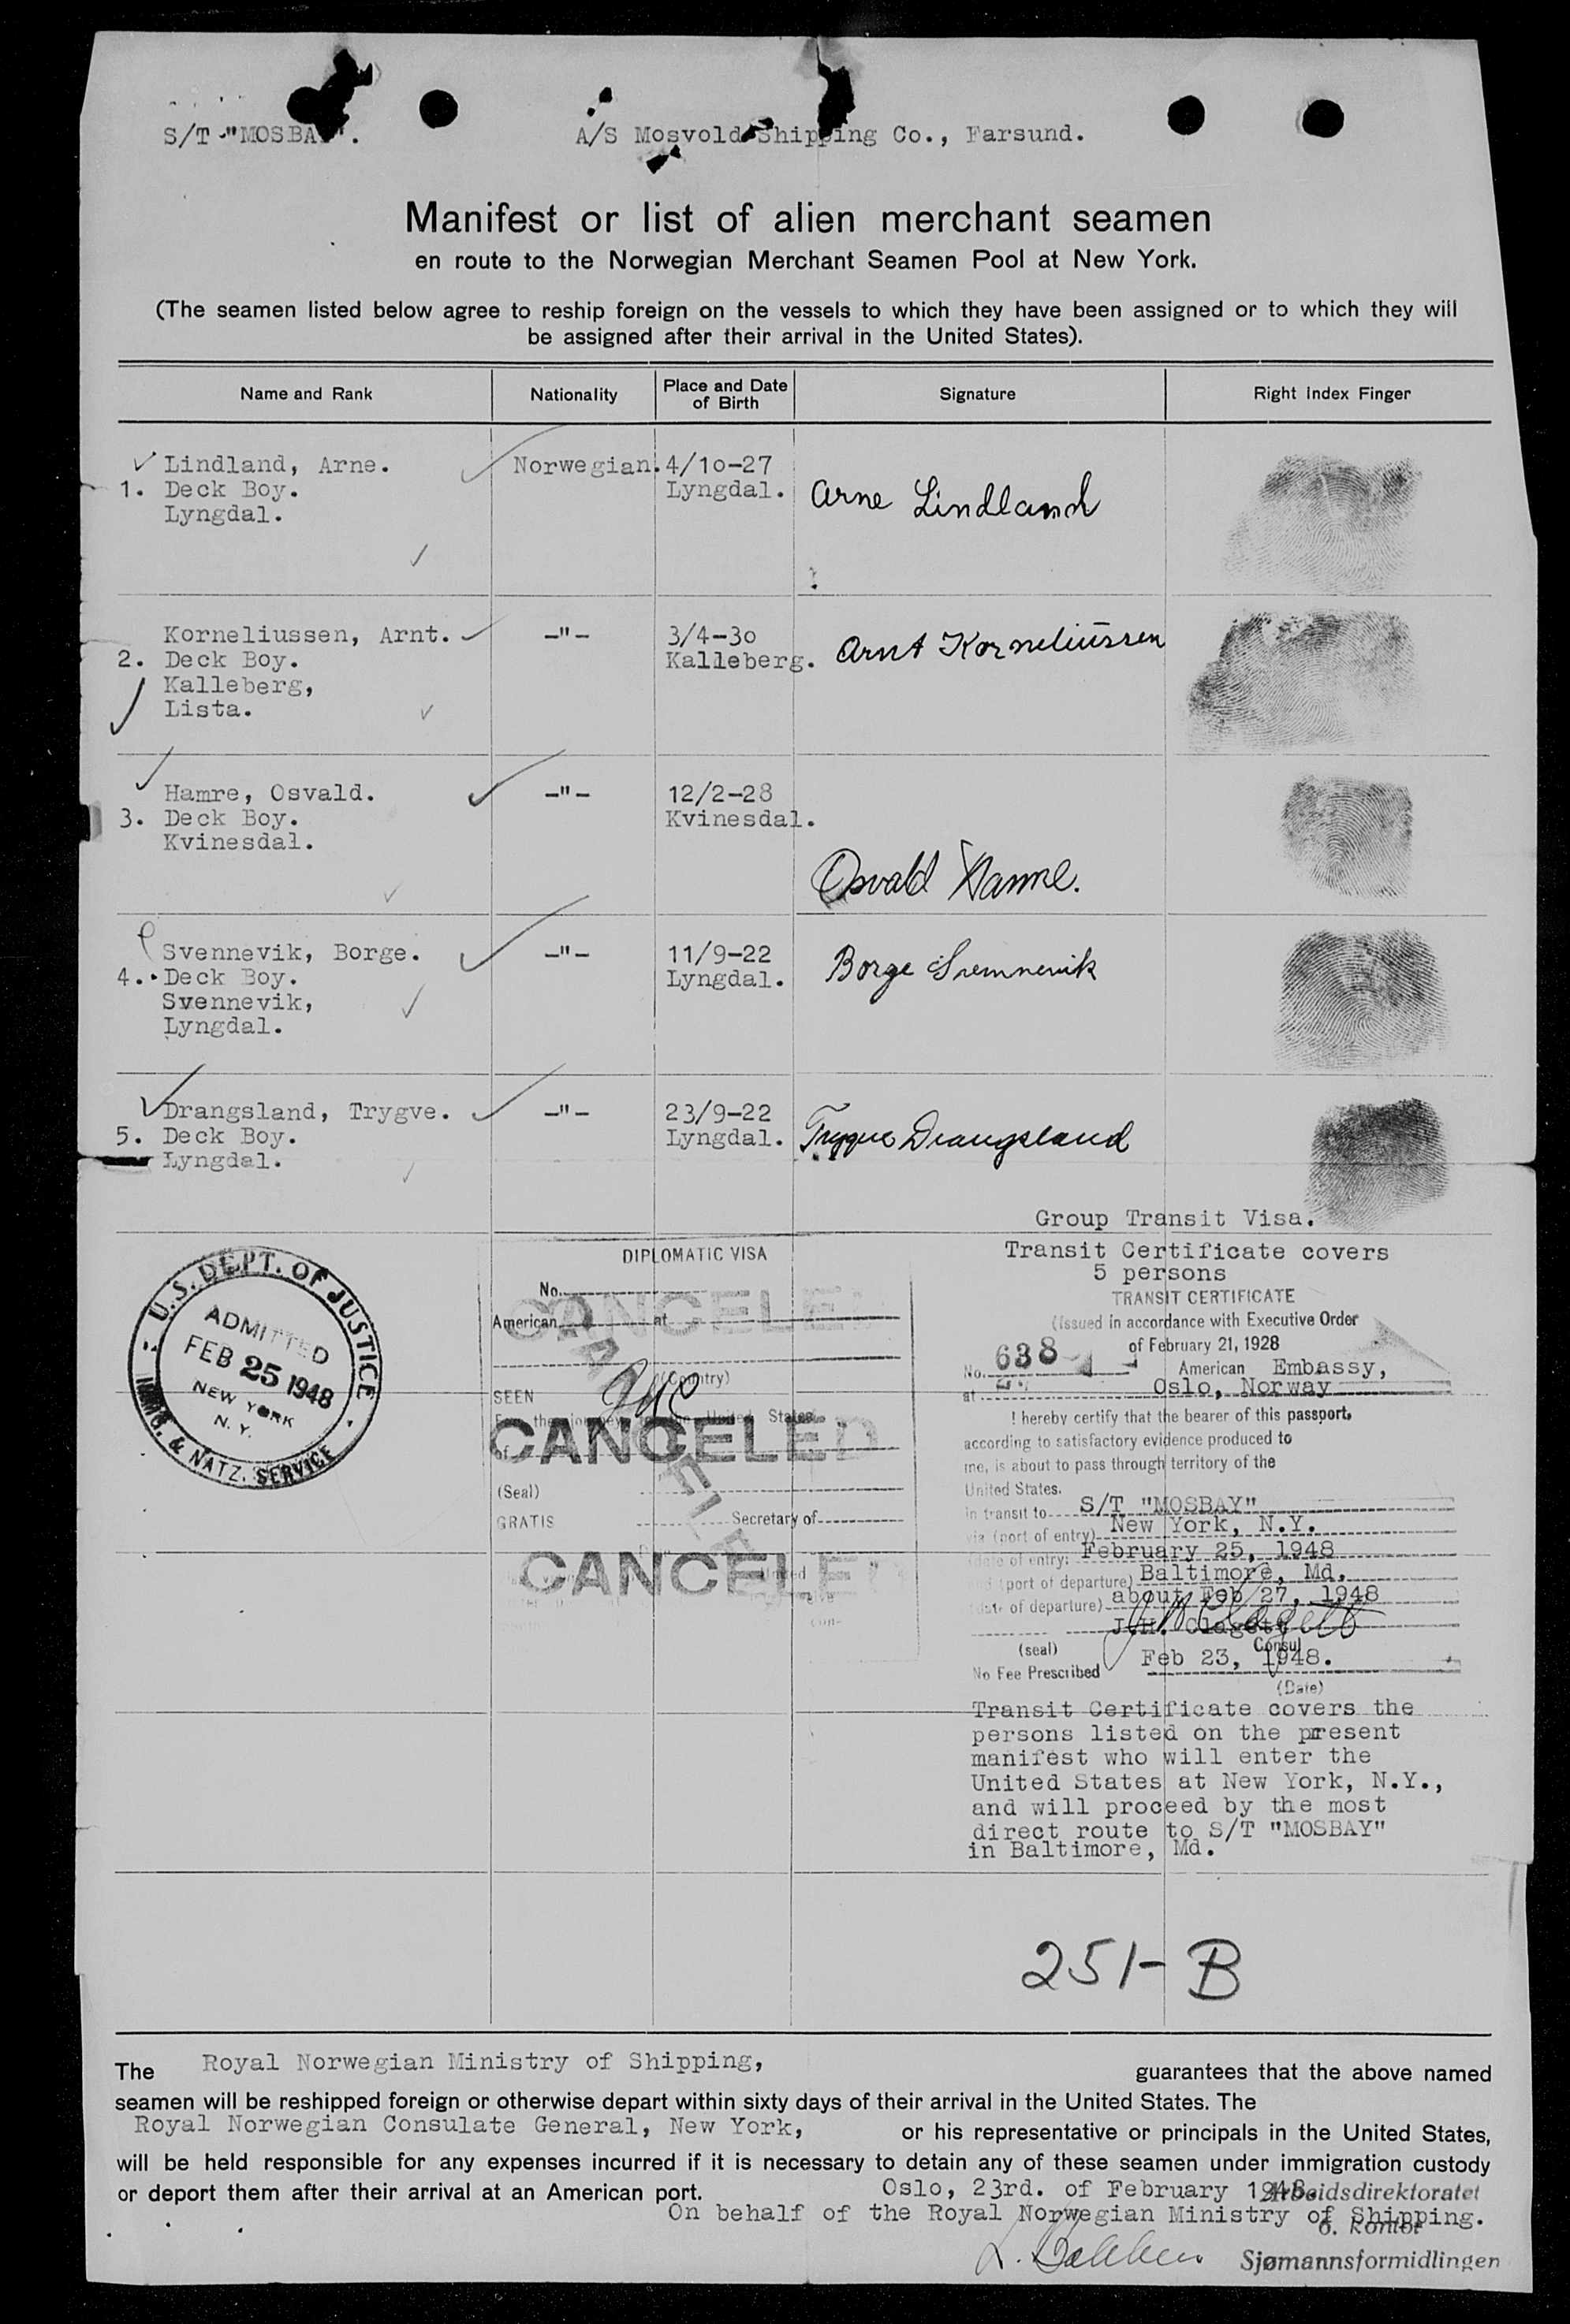 S/T "MOSBAY".
A/S Mosvold Shipping Co., Farsund.
Manifest or list of alien merchant seamen
en route to the Norwegian Merchant Seamen Pool at New York.
(The seamen listed below agree to reship foreign on the vessels to which they have been assigned or to which they will
be assigned after their arrival in the United States).
Name and Rank Nationality Place and Date of Birth Signature Right Index Finger
Lindland, Arne. Norwegian. 4/10-27
1. Deck Boy. Lyngdal. Arne Lindland
Lyngdal.
Korneliussen, Arnt. -"- 3/4-30
2. Deck Boy. Kalleberg. Arnt Korneliussen
Kalleberg,
Lista.
Hamre, Osvald. -"- 12/2-28
3. Deck Boy. Kvinesdal.
Kvinesdal.
Osvald Hamre.
Svennevik, Borge. -"- 11/9-22
4. Deck Boy. Lyngdal. Borge Svennevik
Svennevik,
Lyngdal.
Drangsland, Trygve. -"- 23/9-22
5. Deck Boy. Lyngdal. Trygve Drangsland
Lyngdal.
U.S. DEPT. OF JUSTICE
ADMITTED
FEB 25 1948
NEW YORK
N. Y.
IMMIG. & NATZ. SERVICE
DIPLOMATIC VISA
No.
CANCELED
American at
(Country)
SEEN
CANCELED
of
(Seal)
GRATIS Secretary of
CANCELED
Group Transit Visa.
Transit Certificate covers
5 persons
TRANSIT CERTIFICATE
(Issued in accordance with Executive Order
of February 21, 1928
No. 638 American Embassy,
at Oslo, Norway
I hereby certify that the bearer of this passport,
according to satisfactory evidence produced to
me, is about to pass through territory of the
United States.
in transit to S/T "MOSBAY"
via (port of entry) New York, N.Y.
(date of entry) February 25, 1948
(port of departure) Baltimore, Md.
(date of departure) about Feb 27, 1948
J.H. Clagett
(seal) Consul
No Fee Prescribed Feb 23, 1948.
(Date)
Transit Certificate covers the
persons listed on the present
manifest who will enter the
United States at New York, N.Y.,
and will proceed by the most
direct route to S/T "MOSBAY"
in Baltimore, Md.
251-B
The Royal Norwegian Ministry of Shipping, guarantees that the above named
seamen will be reshipped foreign or otherwise depart within sixty days of their arrival in the United States. The
Royal Norwegian Consulate General, New York, or his representative or principals in the United States,
will be held responsible for any expenses incurred if it is necessary to detain any of these seamen under immigration custody
or deport them after their arrival at an American port. Oslo, 23rd. of February 1948.
Arbeidsdirektoratet
On behalf of the Royal Norwegian Ministry of Shipping.
6. kontor
Sjømannsformidlingen